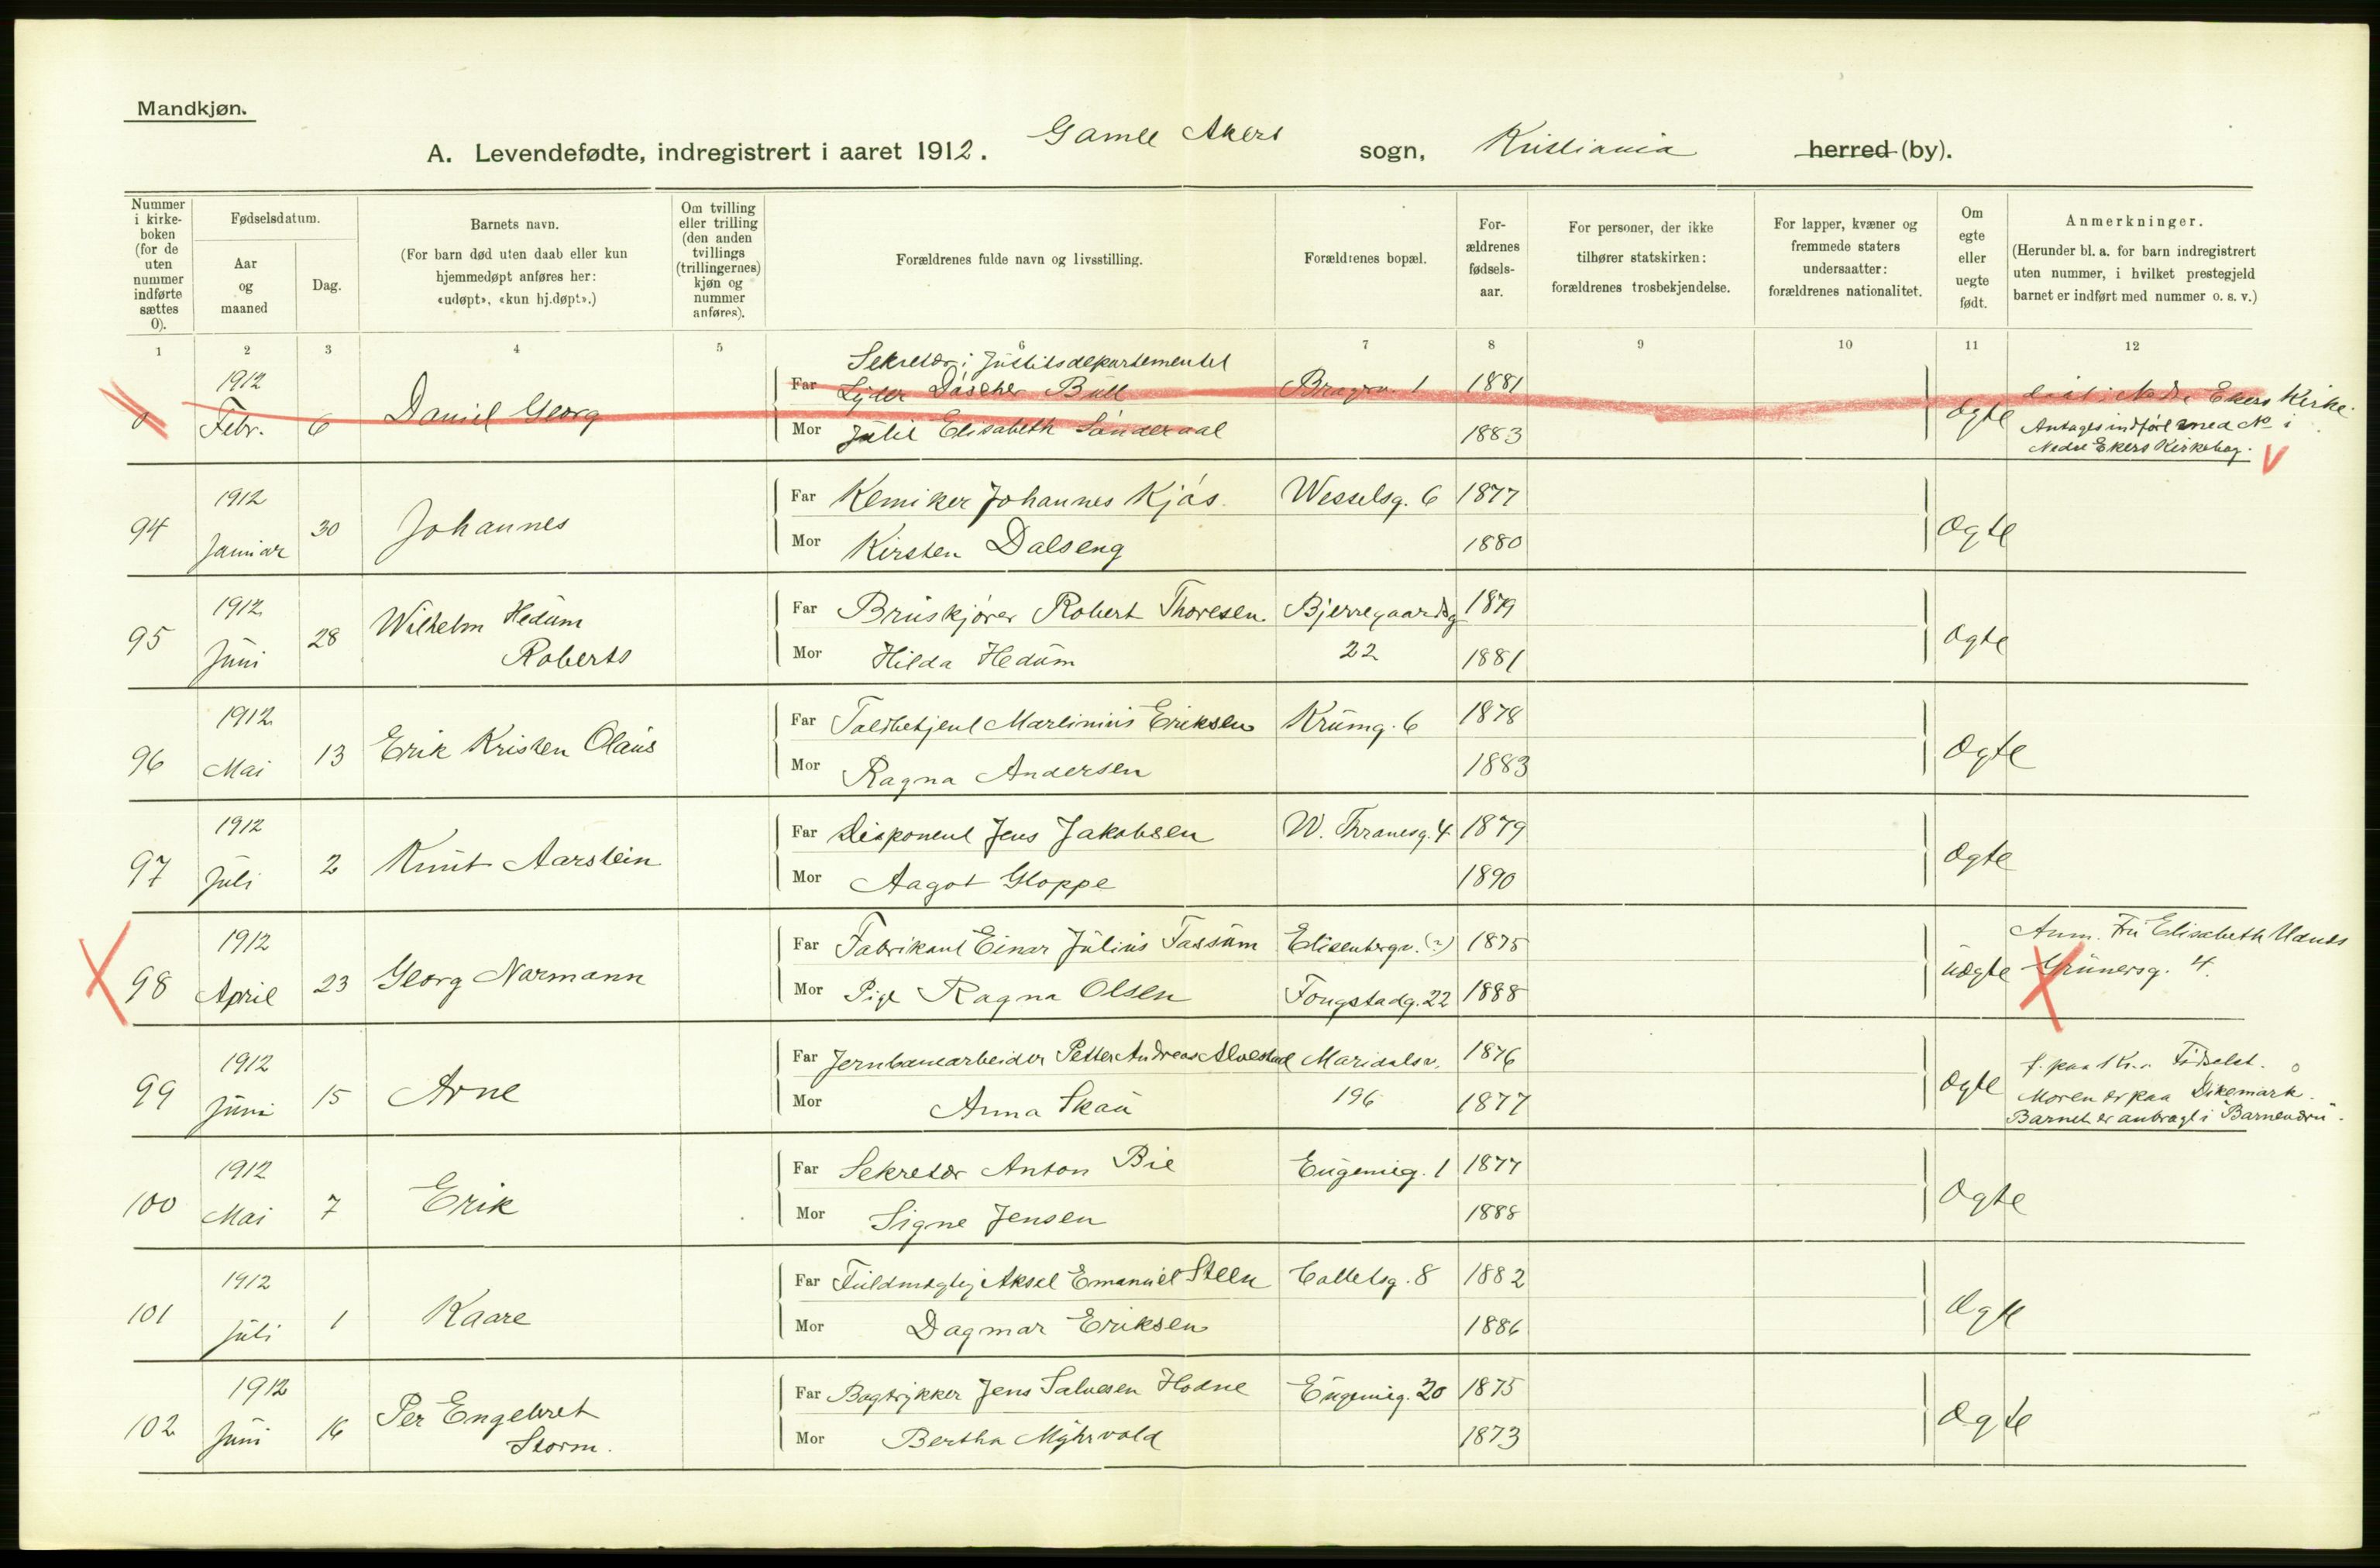 Mandkjøn.
A. Levendefødte, indregistrert i aaret 1912. Gamle Akers sogn, Kristiania herred (by).
Nummer i kirke-boken (for de uten nummer indførte sættes 0).
Fødselsdatum.
Aar og maaned
Dag.
Barnets navn.
(For barn død uten daab eller kun hjemmedøpt anføres her: «udøpt», «kun hj.døpt».)
Om tvilling eller trilling (den anden tvillings (trillingernes) kjøn og nummer anføres).
Forældrenes fulde navn og livsstilling.
Forældrenes bopæl.
For-ældrenes fødsels-aar.
For personer, der ikke tilhører statskirken: forældrenes trosbekjendelse.
For lapper, kvæner og fremmede staters undersaatter: forældrenes nationalitet.
Om egte eller uegte født.
Anmerkninger.
(Herunder bl. a. for barn indregistrert uten nummer, i hvilket prestegjeld barnet er indført med nummer o. s. v.)
1 2 3 4 5 6 7 8 9 10 11 12
Sekretær i Justitsdepartementet
1912 Far Bull 1 1881 Nedre Ekers Kirke.
0 Febr. 6 Daniel Georg Mor Julie Elisabeth Sønderaal 1883 Ægte Antages indført med No i
Nedre Ekers Kirkebog. V
1912 Far Kemiker Johannes Kjøs. Wesselsg. 6 1877
94 Januar 30 Johannes Mor Kirsten Dalseng 1880 Ægte
1912 Wilhelm Hedum Far Bruskjører Robert Thoresen Bjerregaardsg 1879
95 Juni 28 Roberts Mor Hilda Hedum 22 1881 Ægte
1912 Far Toldbetjent Martinius Eriksen Krumg. 6 1878
96 Mai 13 Erik Kristen Olaus Mor Ragna Andersen 1883 Ægte
1912 Far Disponent Jens Jakobsen W. Thranesg. 4 1879
97 Juli 2 Knut Aarstein Mor Aagot Gloppe 1890 Ægte
1912 Far Fabrikant Einar Julius Fassum Elisenbergv. (?) 1875 Anm. Fru Elisabeth
98 April 23 Georg Narmann Mor Pige Ragna Olsen Fougstadg. 22 1888 Uægte Grünersg. 4.
1912 Far Jernbanearbeider Petter Andreas Alvestad Maridalsv. 1876 f. paa Kr.a Fødselst.
99 Juni 15 Arne Mor Anna Skau 196 1877 Ægte Moren er paa Dikemark.
Barnet er anbragt i
1912 Far Sekretær Anton Bie Eugenieg. 1 1877
100 Mai 7 Erik Mor Signe Jensen 1888 Ægte
1912 Far Fuldmægtig Aksel Emanuel Steen Colletsg. 8 1882
101 Juli 1 Kaare Mor Dagmar Eriksen 1886 Ægte
1912 Per Engebret Far Bogtrykker Jens Salvesen Hodne Eugenieg. 20 1875
102 Juni 16 Storm. Mor Bertha Myhrvold 1873 Ægte